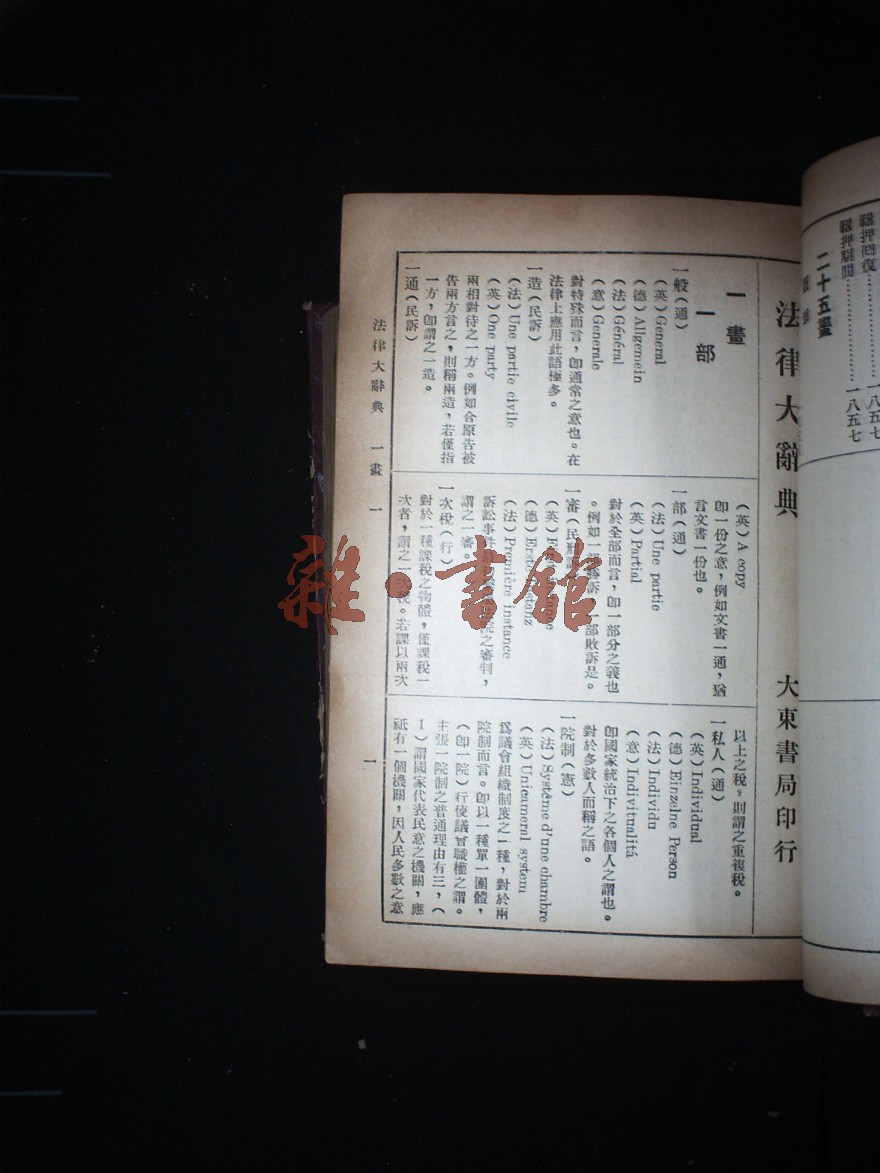 羈押回復……………一八五七
羈押期間……………一八五七
二十五畫
法律大辭典
大東書局印行
一畫
一部
一般（通）
（英）General
（德）Allgemein
（法）Général
（意）Generale
對特殊而言，卽通常之意也。在
法律上應用此語極多。
一造（民訴）
（法）Une partie civile
（英）One party
兩相對待之一方。例如合原告被
告兩方言之，則稱兩造，若僅指
一方，卽謂之一造。
一通（民訴）
（英）A copy
卽一份之意，例如文書一通，猶
言文書一份也。
一部（通）
（法）Une partie
（英）Partial
對於全部而言，卽一部分之義也
。例如一部勝訴，一部敗訴是。
一審（民刑訴）
（英）First instance
（德）Erste Instanz
（法）Première instance
訴訟事件之審判，
謂之一審。
一次稅（行）
對於一種課稅之物體，僅課稅一
次者，謂之一次稅。若課以兩次
以上之稅，則謂之重複稅。
一私人（通）
（英）Individual
（德）Einzelne Person
（法）Individu
（意）Indivitualitá
卽國家統治下之各個人之謂也。
對於多數人而稱之語。
一院制（憲）
（法）Système d'une chambre
（英）Unicameral system
爲議會組織制度之一種，對於兩
院制而言。卽以一種單一團體，
（卽一院）行使議會職權之謂。
主張一院制之普通理由有三，（
1）謂國家代表民意之機關，應
祇有一個機關，因人民多數之意
法律大辭典 一畫 一
一
雜·書館